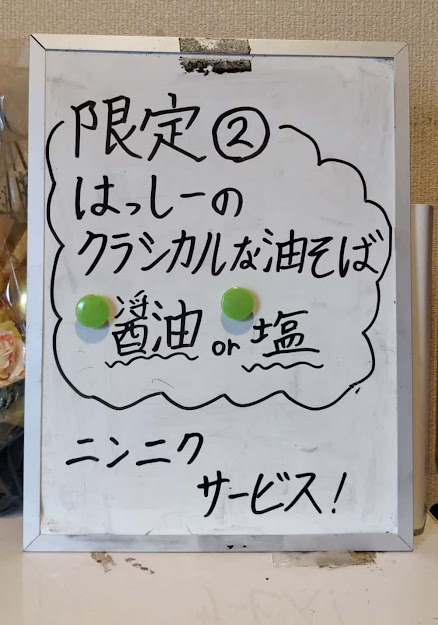 限定②
はっしーの
クラシカルな油そば
醤油 or 塩
ニンニク
サービス!